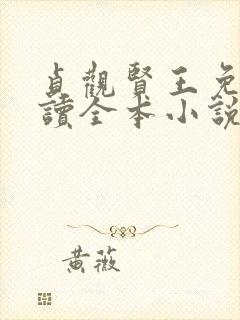 貞觀賢王免
讀全本小說
黃薇